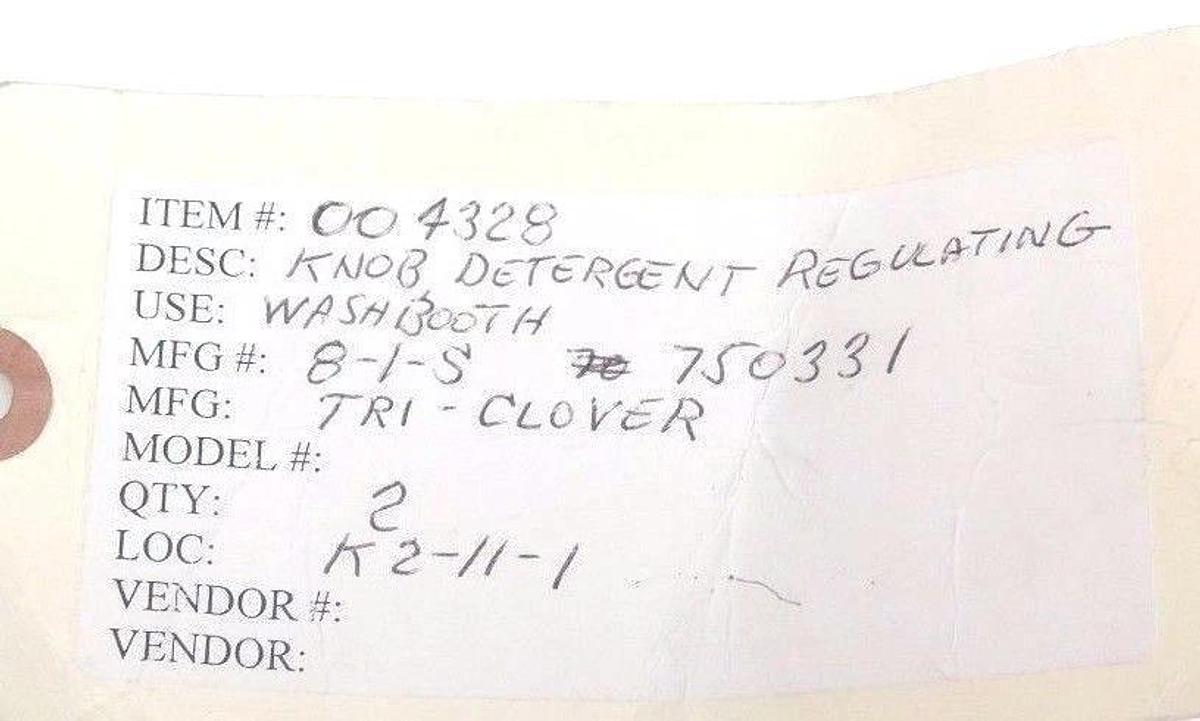 ITEM #: 004328
DESC: KNOB, DETERGENT REGULATING
USE: WASHBOOTH
MFG #: 8-1-S 750331
MFG: TRI-CLOVER
MODEL #:
QTY: 2
LOC: K2-11-1
VENDOR #:
VENDOR: